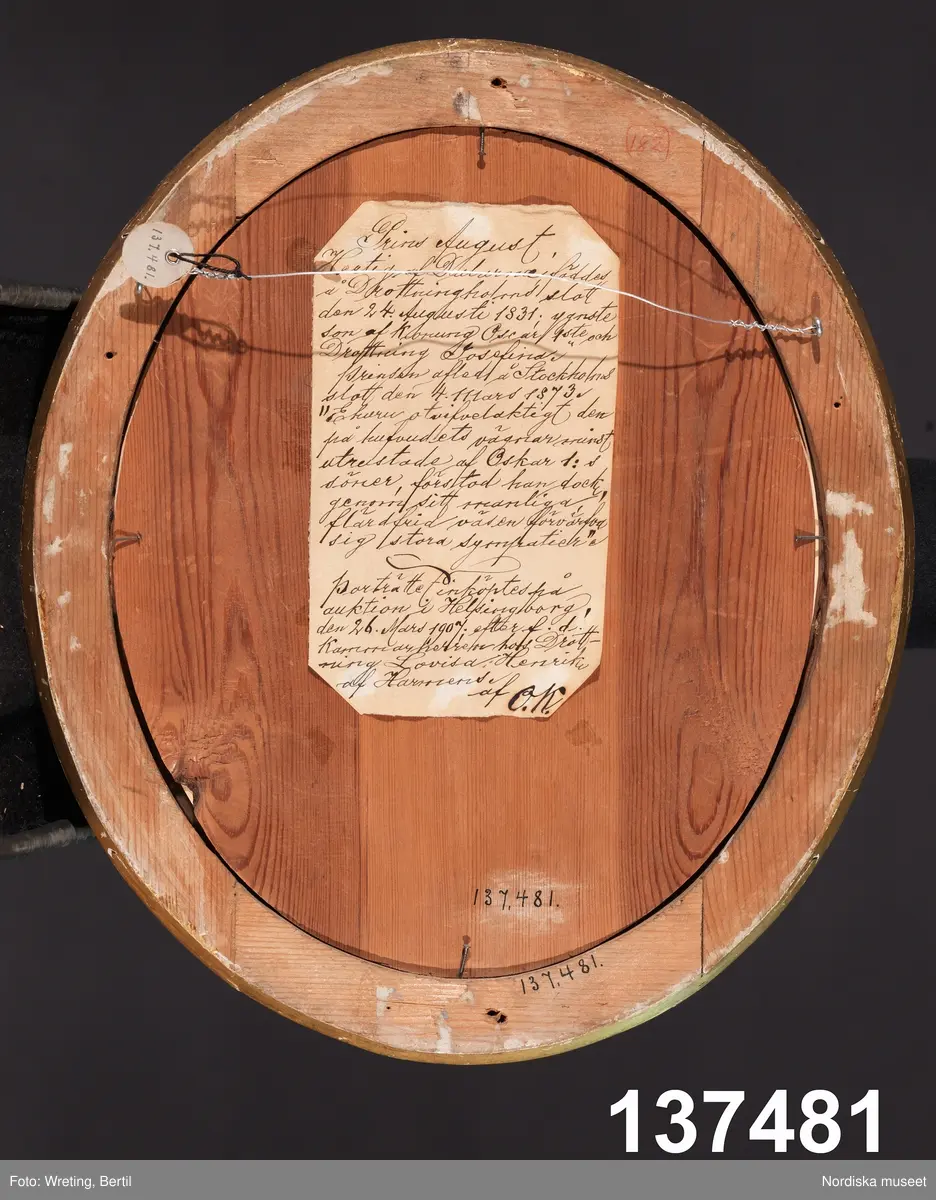 182
137.481.
Prins August,
Hertig af Dalarne, föddes
å Drottningholms slot
den 24. Augusti 1831; yngste
son af Konung Oscar 1ste och
Drottning Josefina.
Prinsen afled å Stockholms
slott den 4. Mars 1873.
"Ehuru otvifvelaktigt den
på hufvudets vägnar minst
utrustade af Oskar 1:s
söner, förstod han dock,
genom sitt manliga,
flärdfria väsen förvärfva
sig stora sympatier".
Porträttet inköptes på
auktion i Helsingborg,
den 26. Mars 1907. efter f. d.
Kammarherren hos Drott-
ning Lovisa, Henrik
af Harmens.
af O.K.
137,481.
137,481.
137481
Foto: Wreting, Bertil
Nordiska museet